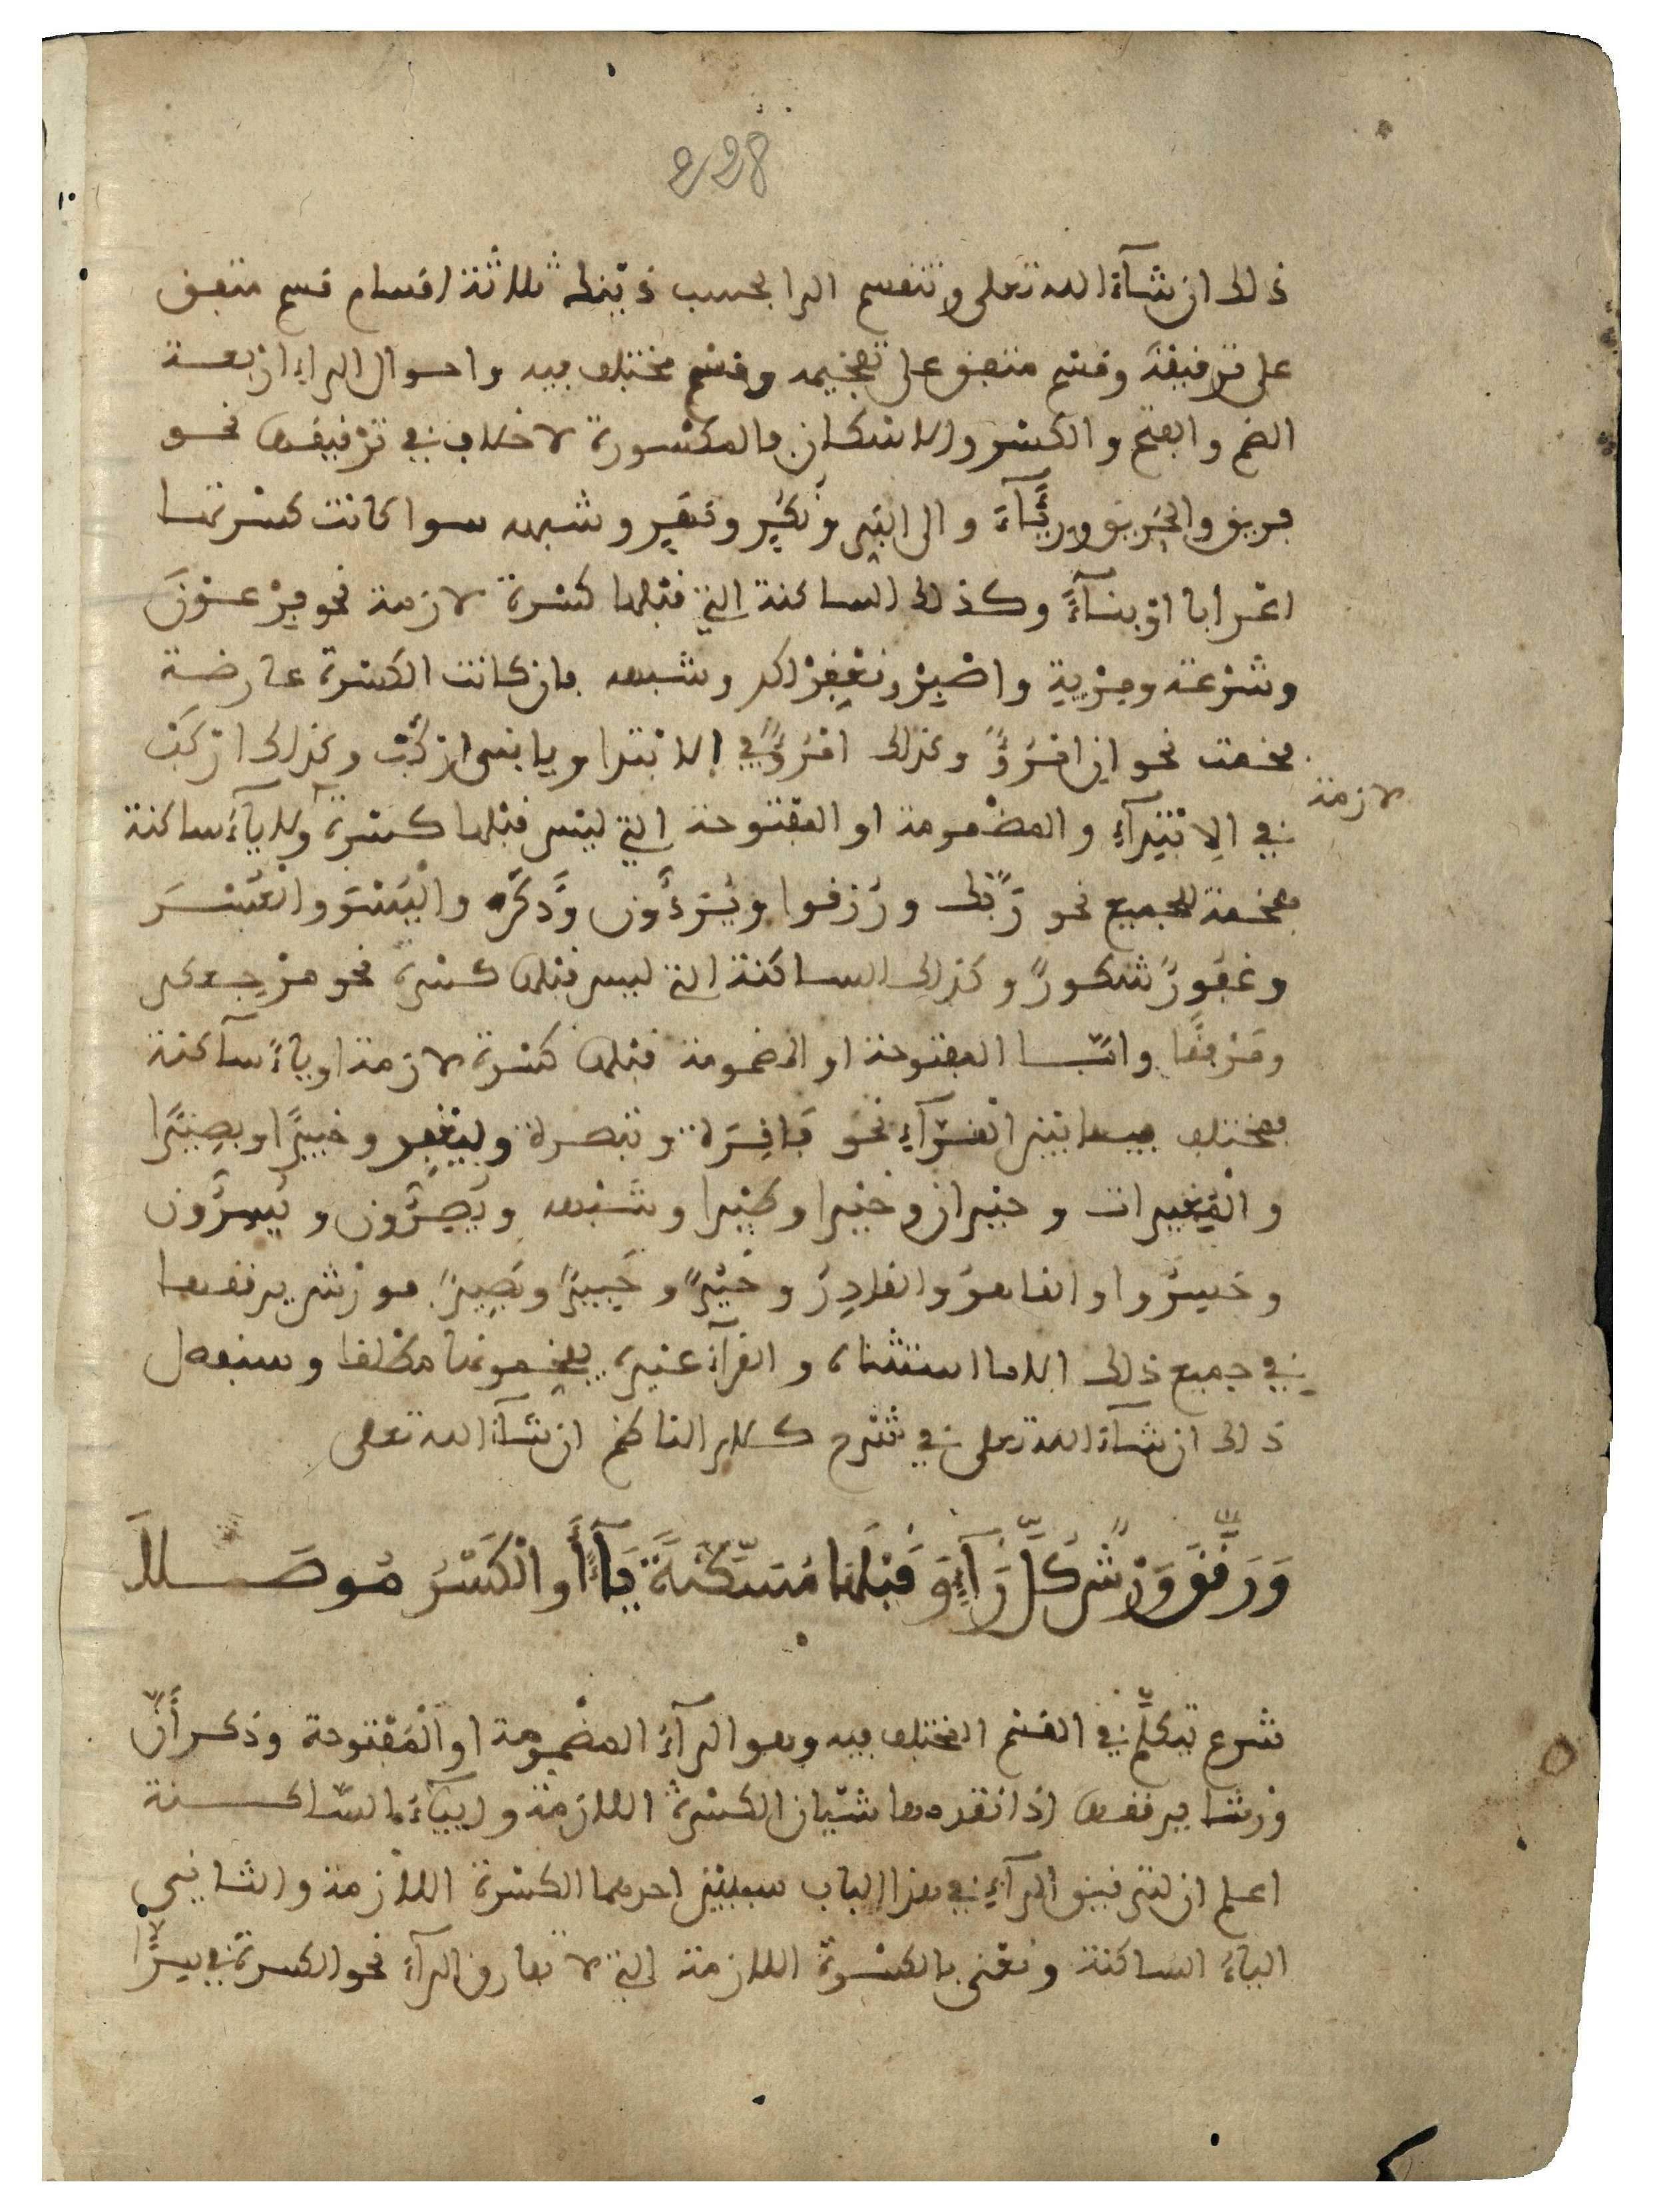 228
ذلك ان شآء الله تعلى وتنقسم الرا بحسب ذينك ثلاثة اقسام قسم متفق
على ترقيقه وقسم متفق على تفخيمه وقسم مختلف فيه واحوال الراء اربعة
الضم والفتح والكسر والاسكان فالمكسورة لا خلاف في ترقيقها نحو
فريق والحريق ورئآء والى النور ونكير ونفير وشبهه سوا كانت كسرتها
اعرابا او بنآء وكذلك الساكنة التي قبلها كسرة لازمة نحو فرعون
وشرعة ومرية واصبر ونغفر لكم وشبهه فان كانت الكسرة عارضة
فخمت نحو ان امرؤ وكذلك امرؤ في الابتدا ويا بني اركب وكذلك اركب
لازمة
في الابتدآء والمضمومة او المفتوحة التي ليس قبلها كسرة ولا يآء ساكنة
مفخمة للجميع نحو ربك ورزقوا ويرءون وذكره واليسر والعسر
وغفور شكور وكذلك الساكنة التي ليس قبلها كسرة نحو مرجعكم
ومرفقا وامّا المفتوحة او المضمومة قبلها كسرة لازمة او ياء ساكنة
فمختلف فيها بين القرآء نحو فاقرة وتبصرة وليغفر وخبيرا وبصيرا
والمغيرات وحيران وخيرا وطيرا وشبهه ويصرون ويسرون
وخسروا والقاهر والقادر وخير وخبير وبصير فورش يرققها
في جميع ذلك الا ما استثناه والقرآء غيره يفخمونها مطلقا وسنفصل
ذلك ان شآء الله تعلى في شرح كلام الناظم ان شآء الله تعلى
وَرَقَّقَ وَرْشٌ كُلَّ رَآءٍ وَقَبْلَهَا مُسَكَّنَةً يَآءٌ أَوِ الْكَسْرُ مُوصَلاَ
شرع يتكلّم في القسم المختلف فيه وهو الرآء المضمومة او المفتوحة وذكر أنّ
ورشا يرققها اذا تقدمها شيئان الكسرة اللازمة واليآء الساكنة
اعلم ان لترقيق الرآء في هذا الباب سببين احدهما الكسرة اللازمة والثاني
الياء الساكنة ونعني بالكسرة اللازمة التي لا تفارق الرآء نحو الكسرة في سرّا